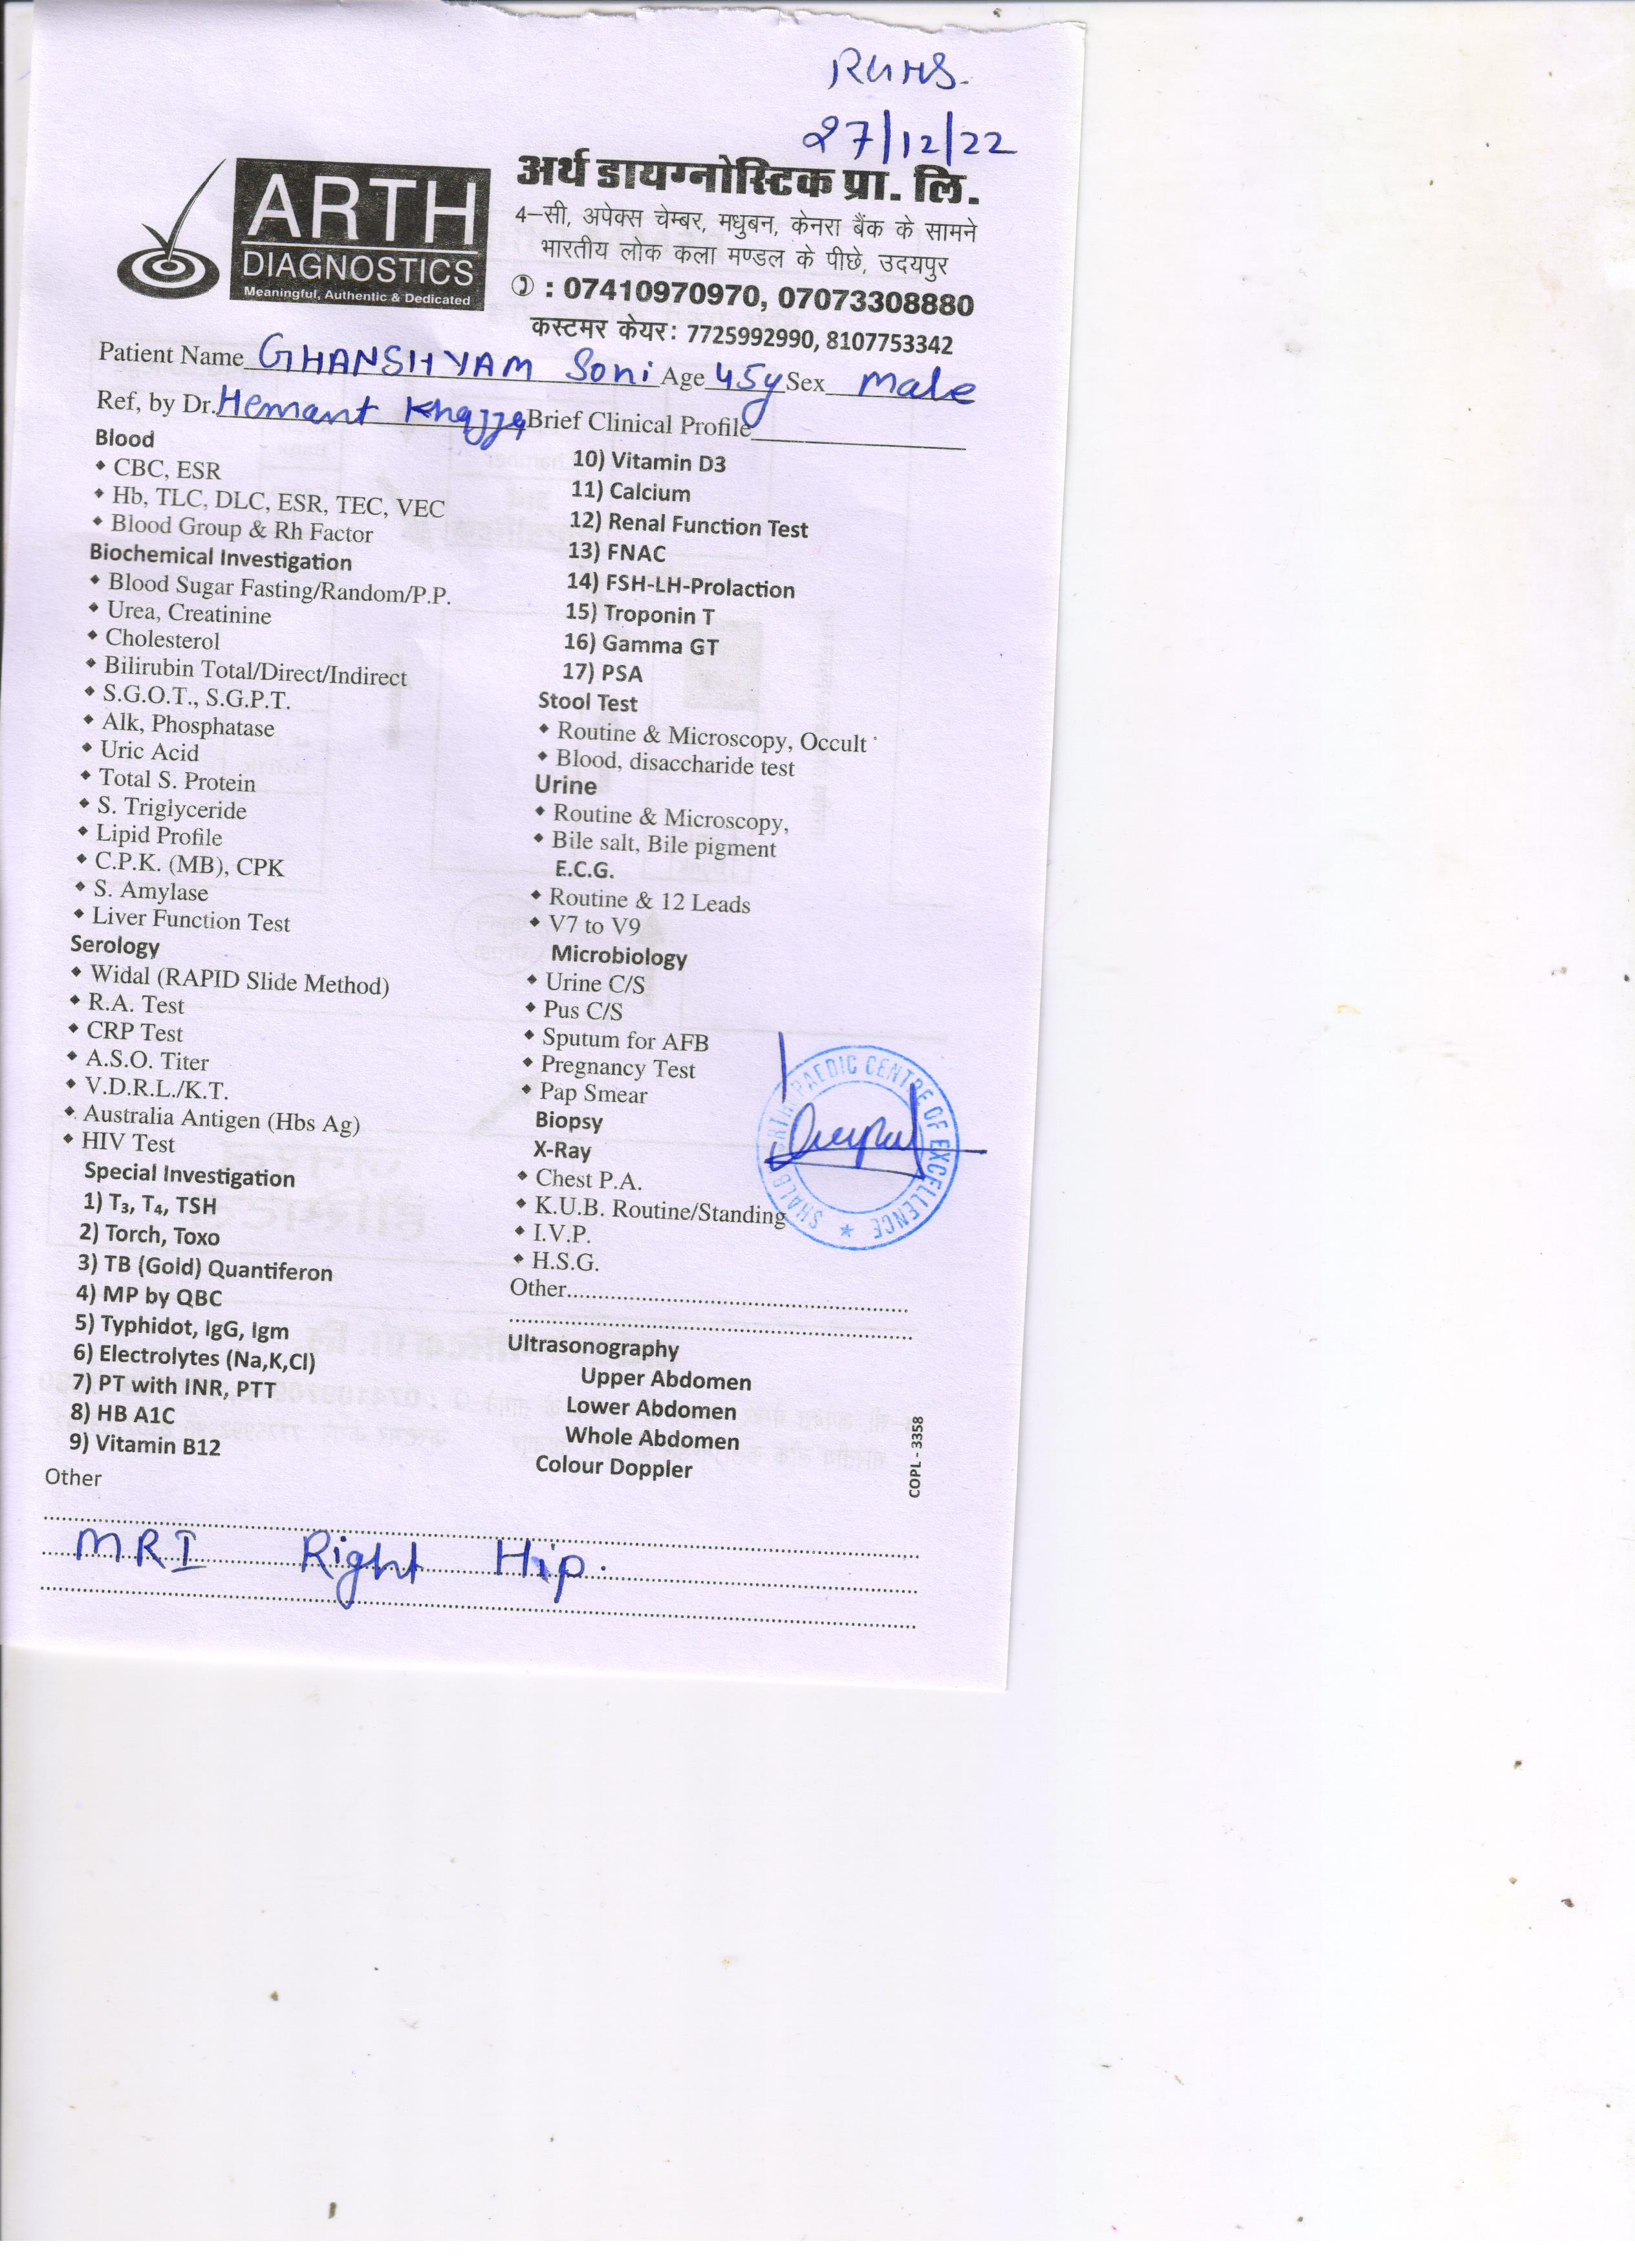 RGHS.
27/12/22
ARTH
DIAGNOSTICS
Meaningful, Authentic & Dedicated
अर्थ डायग्नोस्टिक प्रा. लि.
4–सी, अपेक्स चेम्बर, मधुबन, केनरा बैंक के सामने
भारतीय लोक कला मण्डल के पीछे, उदयपुर
: 07410970970, 07073308880
कस्टमर केयर: 7725992990, 8107753342
Patient Name GHANSHYAM Soni Age 45y Sex Male
Ref, by Dr. Hemant Brief Clinical Profile
Blood
• CBC, ESR
• Hb, TLC, DLC, ESR, TEC, VEC
• Blood Group & Rh Factor
Biochemical Investigation
• Blood Sugar Fasting/Random/P.P.
• Urea, Creatinine
• Cholesterol
• Bilirubin Total/Direct/Indirect
• S.G.O.T., S.G.P.T.
• Alk, Phosphatase
• Uric Acid
• Total S. Protein
• S. Triglyceride
• Lipid Profile
• C.P.K. (MB), CPK
• S. Amylase
• Liver Function Test
Serology
• Widal (RAPID Slide Method)
• R.A. Test
• CRP Test
• A.S.O. Titer
• V.D.R.L./K.T.
• Australia Antigen (Hbs Ag)
• HIV Test
Special Investigation
1) T3, T4, TSH
2) Torch, Toxo
3) TB (Gold) Quantiferon
4) MP by QBC
5) Typhidot, IgG, Igm
6) Electrolytes (Na,K,Cl)
7) PT with INR, PTT
8) HB A1C
9) Vitamin B12
10) Vitamin D3
11) Calcium
12) Renal Function Test
13) FNAC
14) FSH-LH-Prolaction
15) Troponin T
16) Gamma GT
17) PSA
Stool Test
• Routine & Microscopy, Occult
• Blood, disaccharide test
Urine
• Routine & Microscopy,
• Bile salt, Bile pigment
E.C.G.
• Routine & 12 Leads
• V7 to V9
Microbiology
• Urine C/S
• Pus C/S
• Sputum for AFB
• Pregnancy Test
• Pap Smear
Biopsy
X-Ray
• Chest P.A.
• K.U.B. Routine/Standing
• I.V.P.
• H.S.G.
Other
Ultrasonography
Upper Abdomen
Lower Abdomen
Whole Abdomen
Colour Doppler
CENTRE OF EXCELLENCE
COPL - 3358
Other
MRI Right Hip.